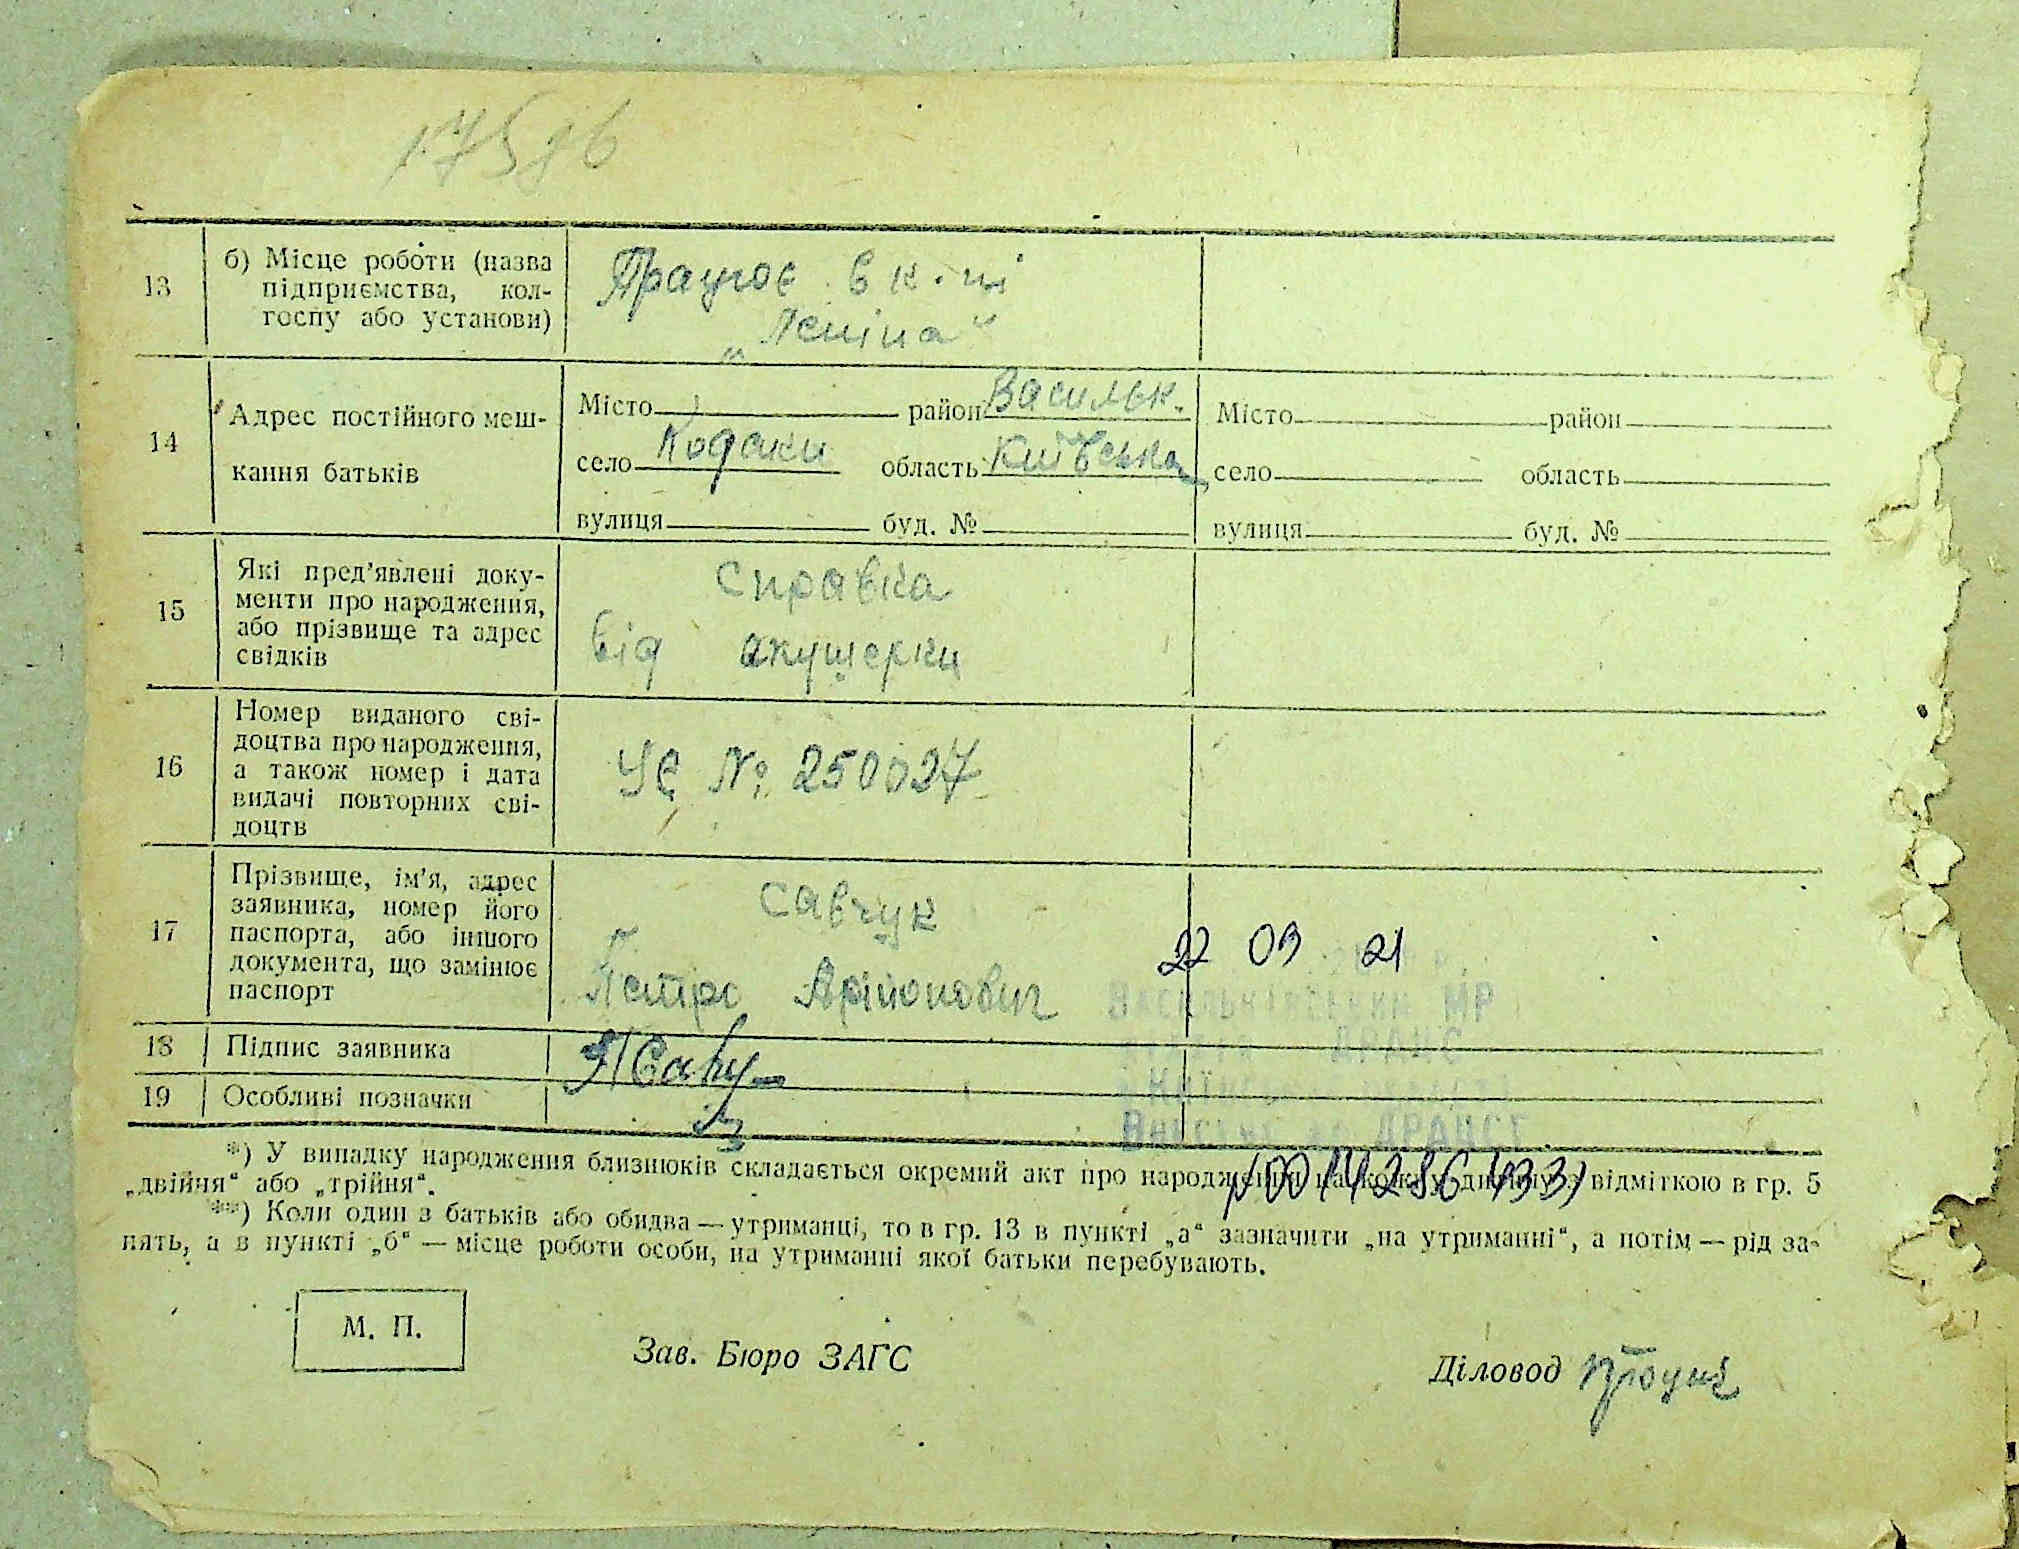 175 зв
13
б) Місце роботи (назва
підприємства, кол-
госпу або установи)
Працює в к-пі
„Леніна“
14
Адрес постійного меш-
кання батьків
Місто район Васильк.
село Кодаки область Київська
вулиця буд. №
Місто район
село область
вулиця буд. №
15
Які пред'явлені доку-
менти про народження,
або прізвище та адрес
свідків
Справка
від акушерки
16
Номер виданого сві-
доцтва про народження,
а також номер і дата
видачі повторних сві-
доцтв
№ 250027
17
Прізвище, ім'я, адрес
заявника, номер його
паспорта, або іншого
документа, що замінює
паспорт
Савчук
Петро Арійонович
22 09 21
Васильківський МР
ДРАЦС
Внесено до ДРАЦСГ
18
Підпис заявника
19
Особливі позначки
*) У випадку народження близнюків складається окремий акт про народження на кожну дитину з відміткою в гр. 5
„двійня“ або „трійня“.
**) Коли один з батьків або обидва — утриманці, то в гр. 13 в пункті „а“ зазначити „на утриманні“, а потім — рід за-
нять, а в пункті „б“ — місце роботи особи, на утриманні якої батьки перебувають.
М. П.
Зав. Бюро ЗАГС
Діловод